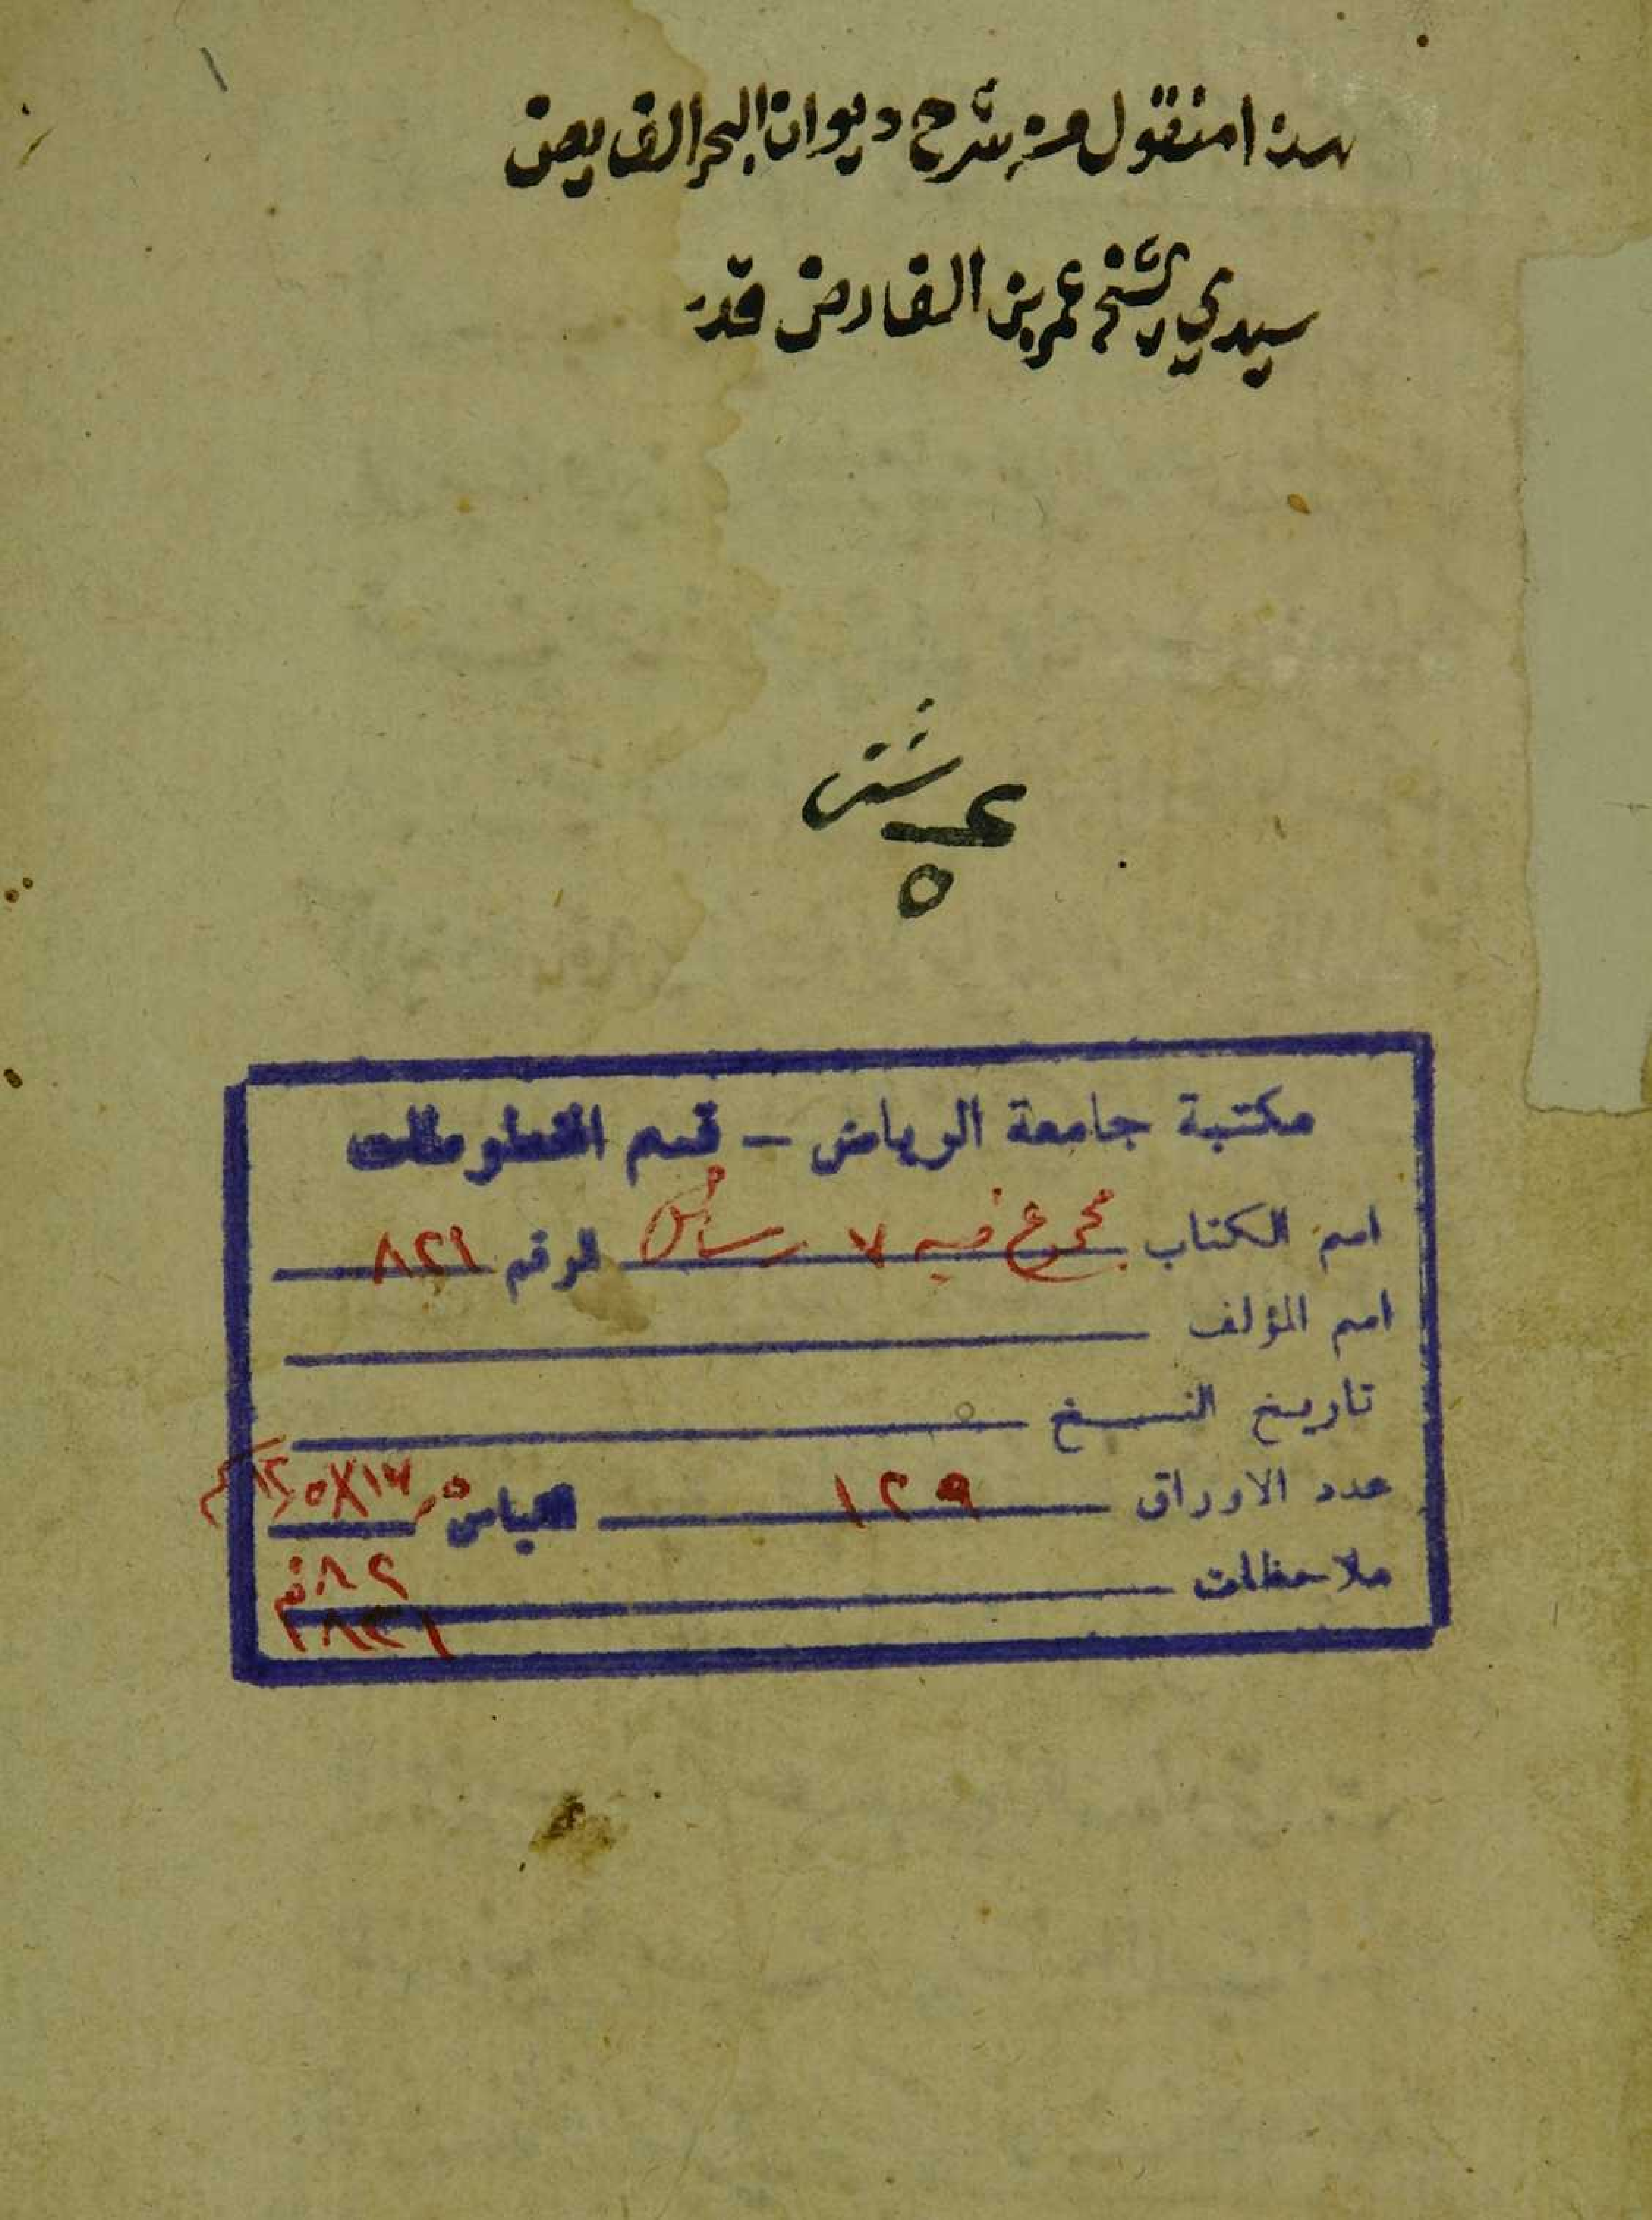 هذا منقول من شرح ديوان البحر الفايض
سيدي الشيخ عمر بن الفارض قد
مكتبة جامعة الرياض – قسم المخطوطات
اسم الكتاب مجموع فيه ٧ رسائل الرقم ٨٢١
اسم المؤلف
تاريخ النسخ
عدد الاوراق ١٢٩ القياس
ملاحظات